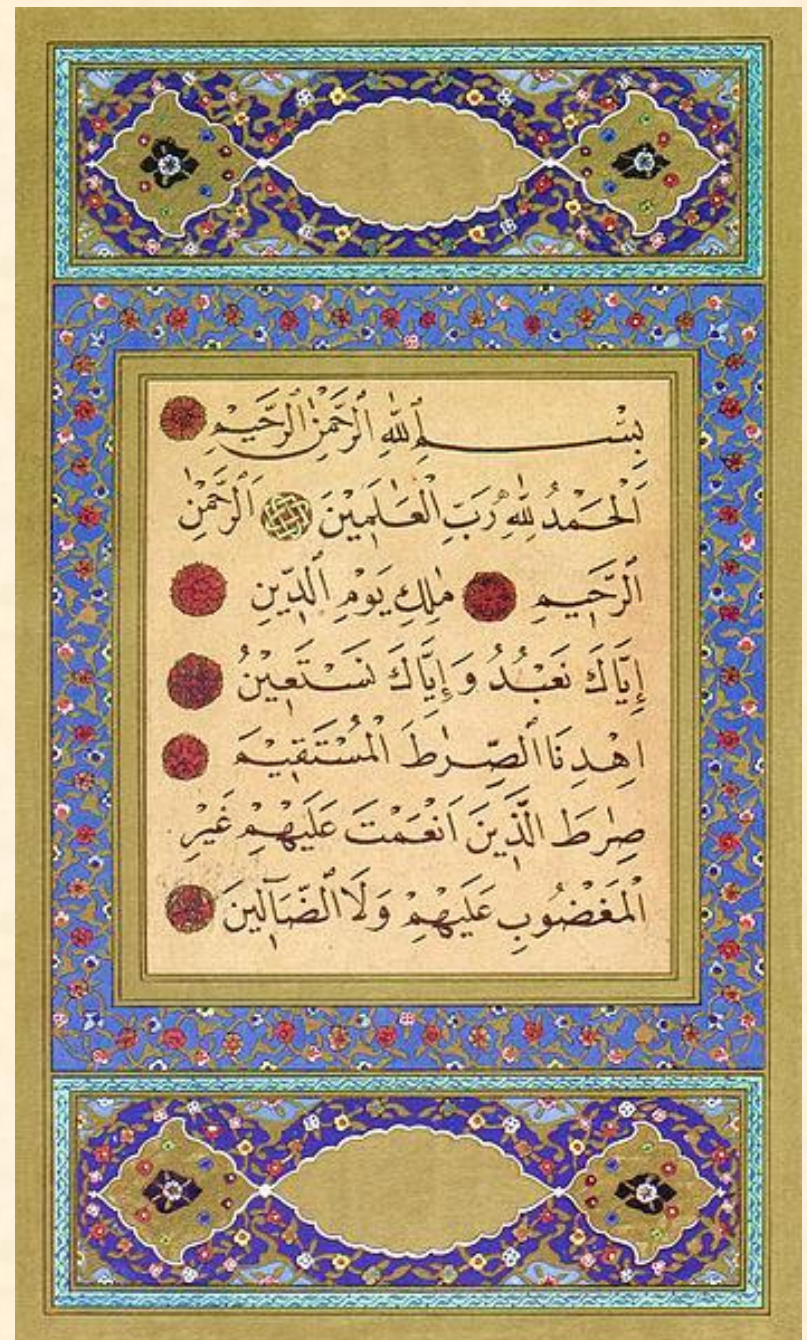 بِسْمِ ٱللّٰهِ ٱلرَّحْمٰنِ ٱلرَّحِيْمِ
اَلْحَمْدُ لِلّٰهِ رَبِّ ٱلْعَالَمِيْنَ اَلرَّحْمٰنِ
ٱلرَّحِيْمِ مٰلِكِ يَوْمِ ٱلدِّيْنِ
إِيَّاكَ نَعْبُدُ وَإِيَّاكَ نَسْتَعِيْنُ
اِهْدِنَا ٱلصِّرٰطَ ٱلْمُسْتَقِيْمَ
صِرٰطَ ٱلَّذِيْنَ اَنْعَمْتَ عَلَيْهِمْ غَيْرِ
ٱلْمَغْضُوْبِ عَلَيْهِمْ وَلَا ٱلضَّآلِّيْنَ